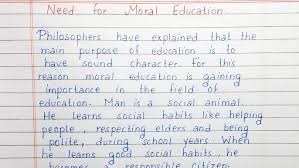 Need for Moral Education
Philosophers have explained that the
main purpose of education is to
have sound character. for this
reason moral education is gaining
importance in the field of
education. Man is a social animal.
He learns social habits like helping
people, respecting elders and being
polite, during school years. When
he learns good social habits, he
becomes a responsible citizen.